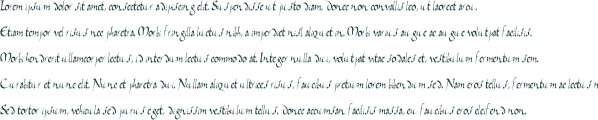 Lorem ipsum dolor sit amet, consectetur adipiscing elit. Suspendisse ut justo diam. Donec non convallis leo, ut laoreet arcu.
Etiam tempor vel risus nec pharetra. Morbi fringilla luctus nibh, a imperdiet nisl aliquet in. Morbi varius augue ac augue volutpat facilisis.
Morbi hendrerit ullamcorper lectus, id interdum lectus commodo at. Integer nulla dui, volutpat vitae sodales et, vestibulum fermentum sem.
Curabitur et nunc elit. Nunc et pharetra dui. Nullam aliquet ultrices risus, faucibus pretium lorem bibendum sed. Nam eros tellus, fermentum ac lectus n
Sed tortor ipsum, vehicula sed purus eget, dignissim vestibulum tellus. Donec accumsan facilisis massa, eu faucibus eros eleifend non.